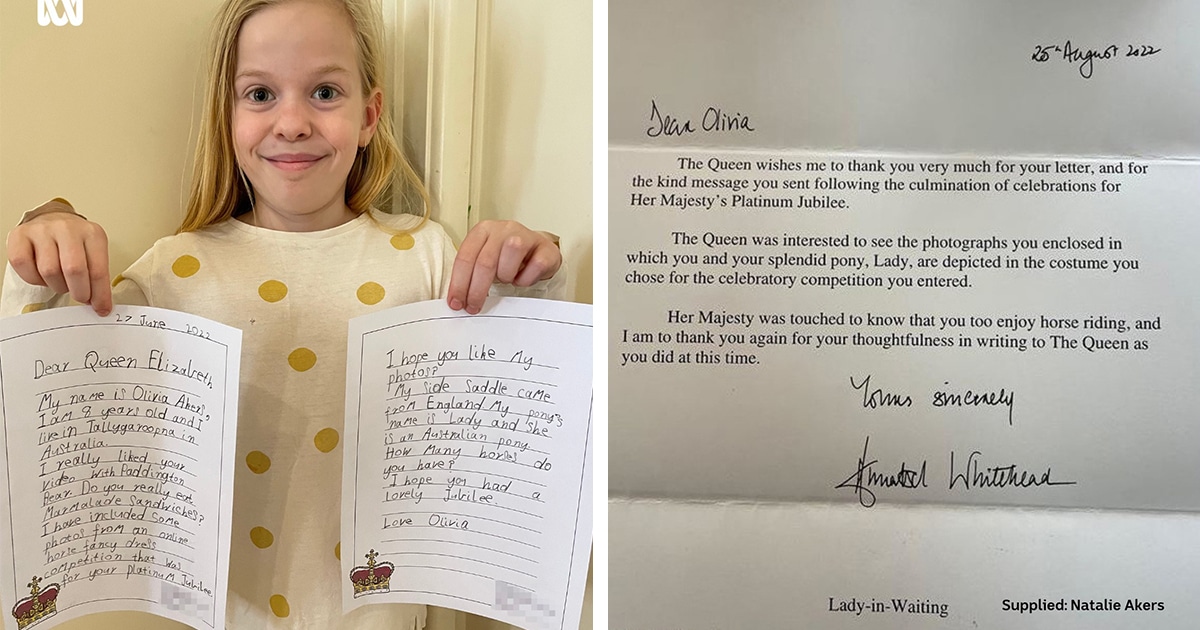 27 June 2022
Dear Queen Elizabeth
My name is Olivia Akers,
I am 8 years old and I
live in Tallygaroopna in
Australia.
I really liked your
video with Paddington
Bear. Do you really eat
Marmalade Sandwiches?
I have included some
photos from an online
horse fancy dress
competition that was
for your platinum Jubilee.
I hope you like My
photos?
My side saddle came
from England My pony's
name is Lady and she
is an Australian pony.
How Many horses do
you have?
I hope you had a
lovely Jubilee.
Love Olivia
25th August 2022
Dear Olivia
The Queen wishes me to thank you very much for your letter, and for
the kind message you sent following the culmination of celebrations for
Her Majesty's Platinum Jubilee.
The Queen was interested to see the photographs you enclosed in
which you and your splendid pony, Lady, are depicted in the costume you
chose for the celebratory competition you entered.
Her Majesty was touched to know that you too enjoy horse riding, and
I am to thank you again for your thoughtfulness in writing to The Queen as
you did at this time.
Yours sincerely
Annabel Whitehead
Lady-in-Waiting
Supplied: Natalie Akers